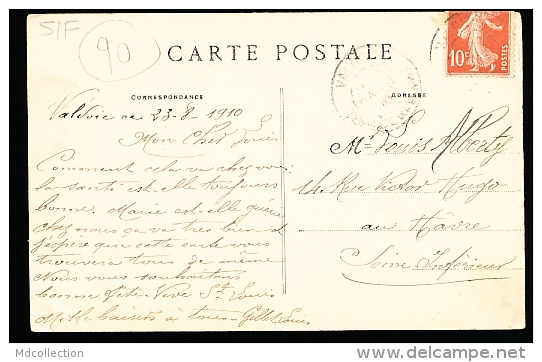 5/F
90
CARTE POSTALE
10c
POSTES
CORRESPONDANCE
ADRESSE
Valdoie ce 23-8-1910
Mon Cher Louis
Comment cela va chez vous
la santé est-elle toujours
bonne. Marie est-elle guérie
chez nous ça va très bien
j'espère que cette carte vous
trouvera tous de même
Nous vous souhaitons
bonne fête. Vive St Louis
Mille baisers à tous. Gillet Louis
Mr Louis Alberty
14 Rue Victor Hugo
au Hâvre
Seine Inférieur
Mdcollection
www.delcampe.net